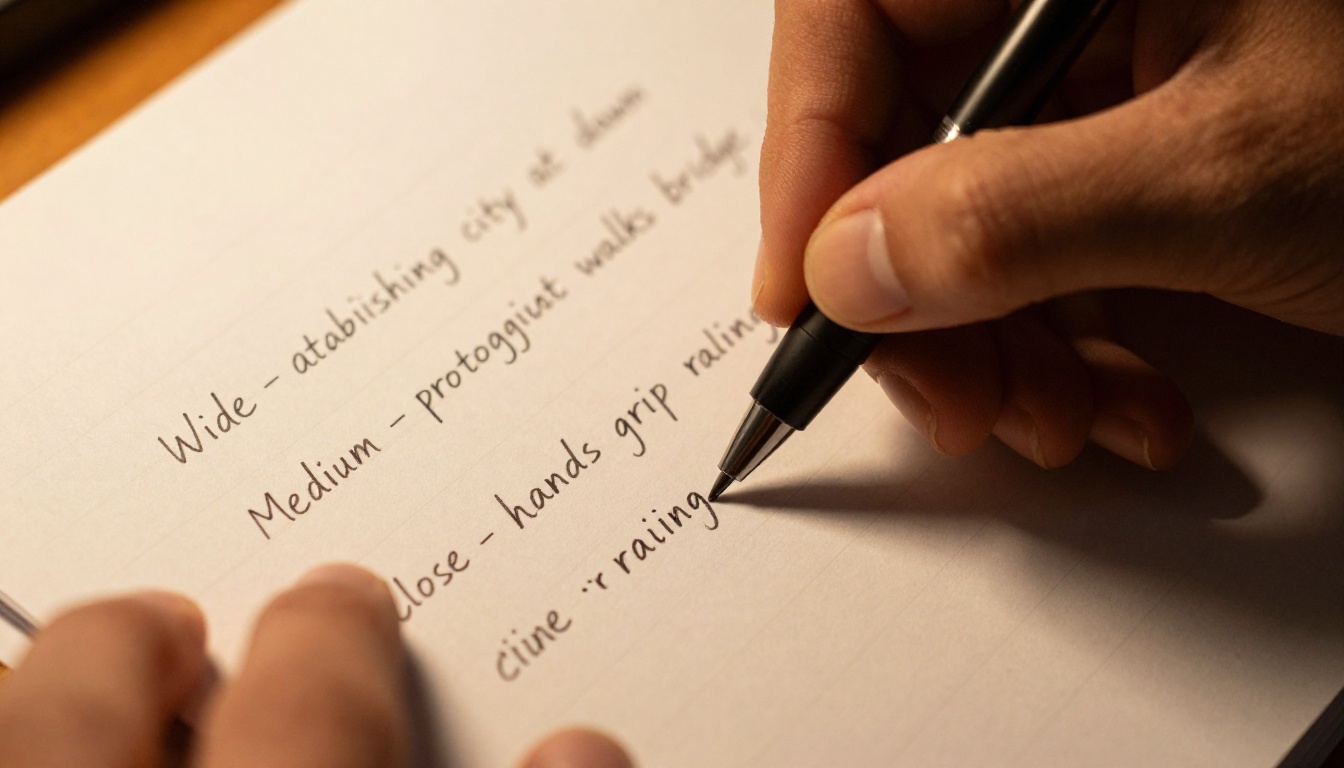 Wide - atabiishing city at dwn
Medium - protoggiut walks bridge
Close - hands grip raling
ciine r raiing